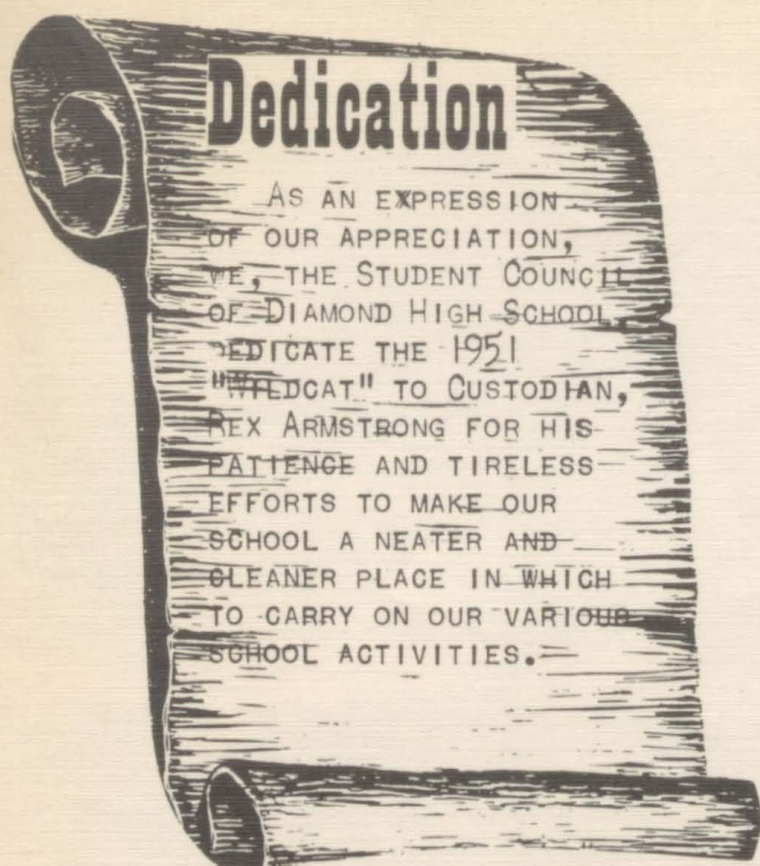 Dedication
AS AN EXPRESSION
OF OUR APPRECIATION,
WE, THE STUDENT COUNCIL
OF DIAMOND HIGH SCHOOL,
DEDICATE THE 1951
"WILDCAT" TO CUSTODIAN,
REX ARMSTRONG FOR HIS
PATIENCE AND TIRELESS
EFFORTS TO MAKE OUR
SCHOOL A NEATER AND
CLEANER PLACE IN WHICH
TO CARRY ON OUR VARIOUS
SCHOOL ACTIVITIES.